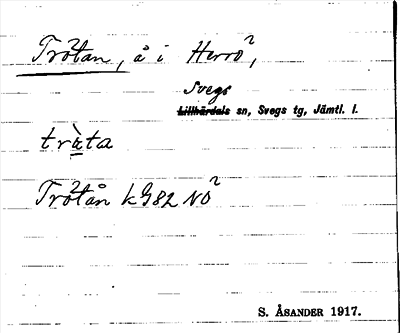 Trötan, å i Herrö,
Svegs
Lillhärdals sn, Svegs tg, Jämtl. l.
tràta
Trötån kG82 NO
S. ÅSANDER 1917.